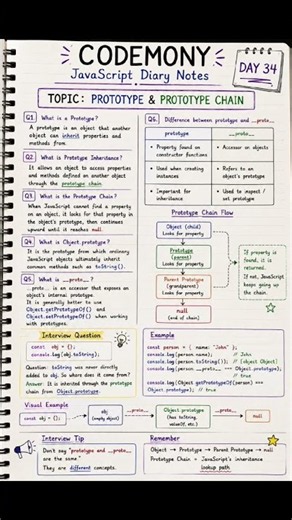 CODEMONY
JavaScript Diary Notes
DAY 34
TOPIC: PROTOTYPE & PROTOTYPE CHAIN
Q1. What is a Prototype?
A prototype is an object that another
object can inherit properties and
methods from.
Q2. What is Prototype Inheritance?
It allows an object to access properties
and methods defined on another
object through the prototype chain.
Q3. What is the Prototype Chain?
When JavaScript cannot find a property
on an object, it looks for that property
in the object's prototype, then continues
upward until it reaches null.
Q4. What is Object.prototype?
It is the prototype from which ordinary
JavaScript objects ultimately inherit
common methods such as toString().
Q5. What is __proto__?
__proto__ is an accessor that exposes an
object's internal prototype.
It is generally better to use
Object.getPrototypeOf() and
Object.setPrototypeOf() when working
with prototypes.
Q6. Difference between prototype and __proto__
prototype
__proto__
• Property found on constructor functions
• Accessor on objects
• Used when creating instances
• Refers to an object's prototype
• Important for inheritance
• Used to inspect / set prototype
Prototype Chain Flow
Object (child)
Looks for property
Prototype
(parent)
Looks for property
Parent Prototype
(grandparent)
Looks for property
null
(end of chain)
If property
is found, it is
returned.
If not, JavaScript
keeps going up
the chain.
Interview Question
const obj = {};
console.log(obj.toString);
Question: toString was never directly
added to obj. So where does it come from?
Answer: It is inherited through the prototype
chain from Object.prototype.
Example
const person = { name: "John" };
console.log(person.name); // John
console.log(person.toString()); // [object Object]
console.log(person.__proto__ === Object.prototype);
// true
console.log(Object.getPrototypeOf(person) ===
Object.prototype); // true
Visual Example
const obj = {};
obj
(empty object)
__proto__
Object.prototype
(has toString,
valueOf, etc.)
__proto__
null
Interview Tip
Don't say "prototype and __proto__
are the same."
They are different concepts.
Remember
Object → Prototype → Parent Prototype → null
Prototype Chain = JavaScript's inheritance
lookup path